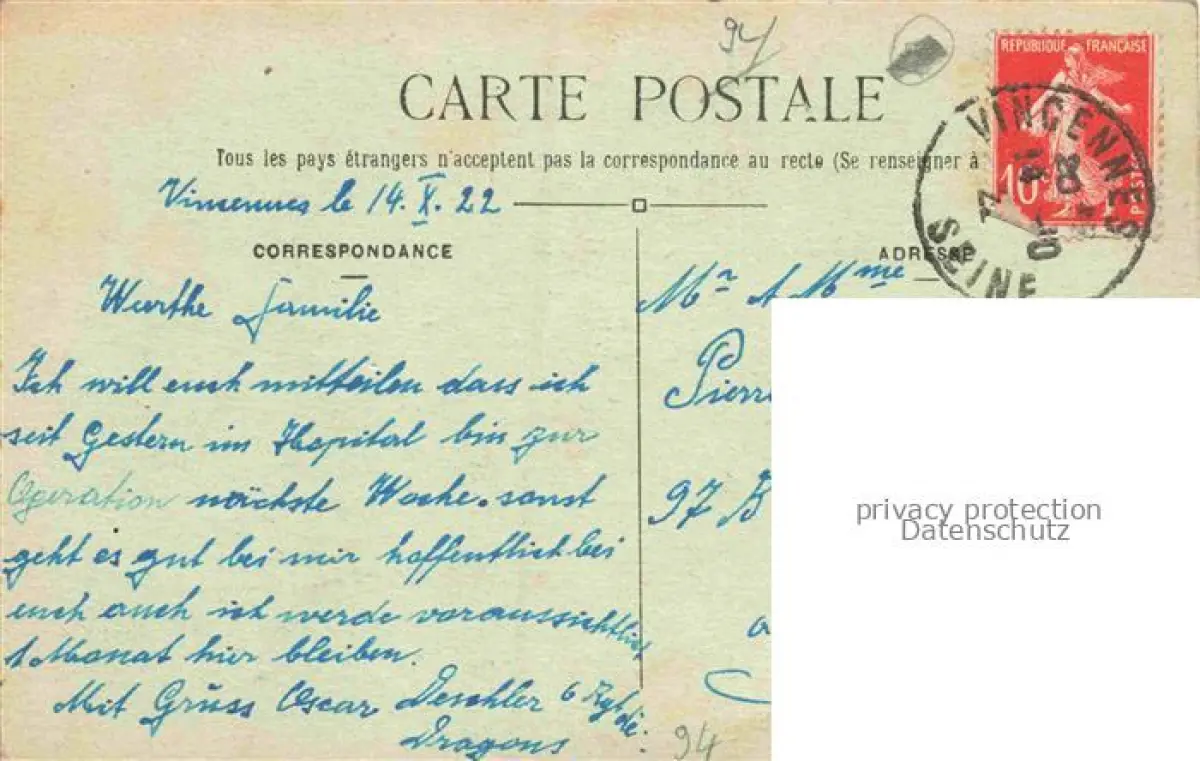 94
CARTE POSTALE
Tous les pays étrangers n'acceptent pas la correspondance au recto (Se renseigner à
REPUBLIQUE FRANÇAISE
10
POSTES
VINCENNES
SEINE
Vincennes le 14.X.22
CORRESPONDANCE
ADRESSE
Werthe Familie
Ich will euch mitteilen dass ich
seit Gestern im Hopital bin zur
Operation nächste Woche. sonst
geht es gut bei mir hoffentlich bei
euch auch ich werde voraussichtlich
1 Monat hier bleiben.
Mit Grüss Oscar Deschler 6 Rgt de
Dragons
Mr et Mme
Pierr
97
94
privacy protection
Datenschutz